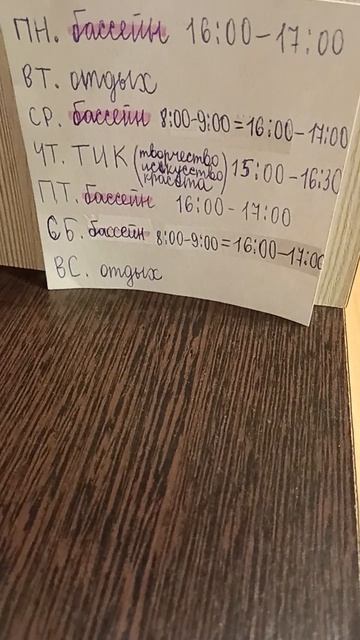 ПН. бассейн 16:00-17:00
ВТ. отдых
СР. бассейн 8:00-9:00 = 16:00-17:00
ЧТ. ТИК (творчество искусство красота) 15:00-16:30
ПТ. бассейн 16:00-17:00
СБ. бассейн 8:00-9:00 = 16:00-17:00
ВС. отдых